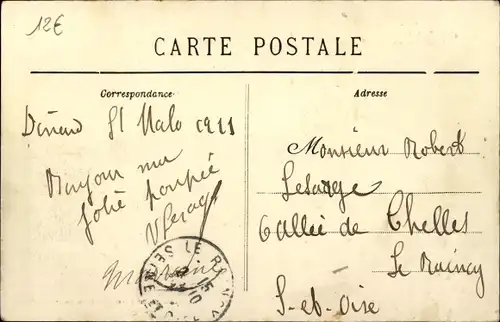 12€
CARTE POSTALE
Correspondance
Adresse
Dinard St Malo 1911
Bonjour ma
jolie poupée
Monsieur Robert
Lesage
6 allée de Chelles
Le Raincy
S-et-Oise
LE RAINCY
15
10